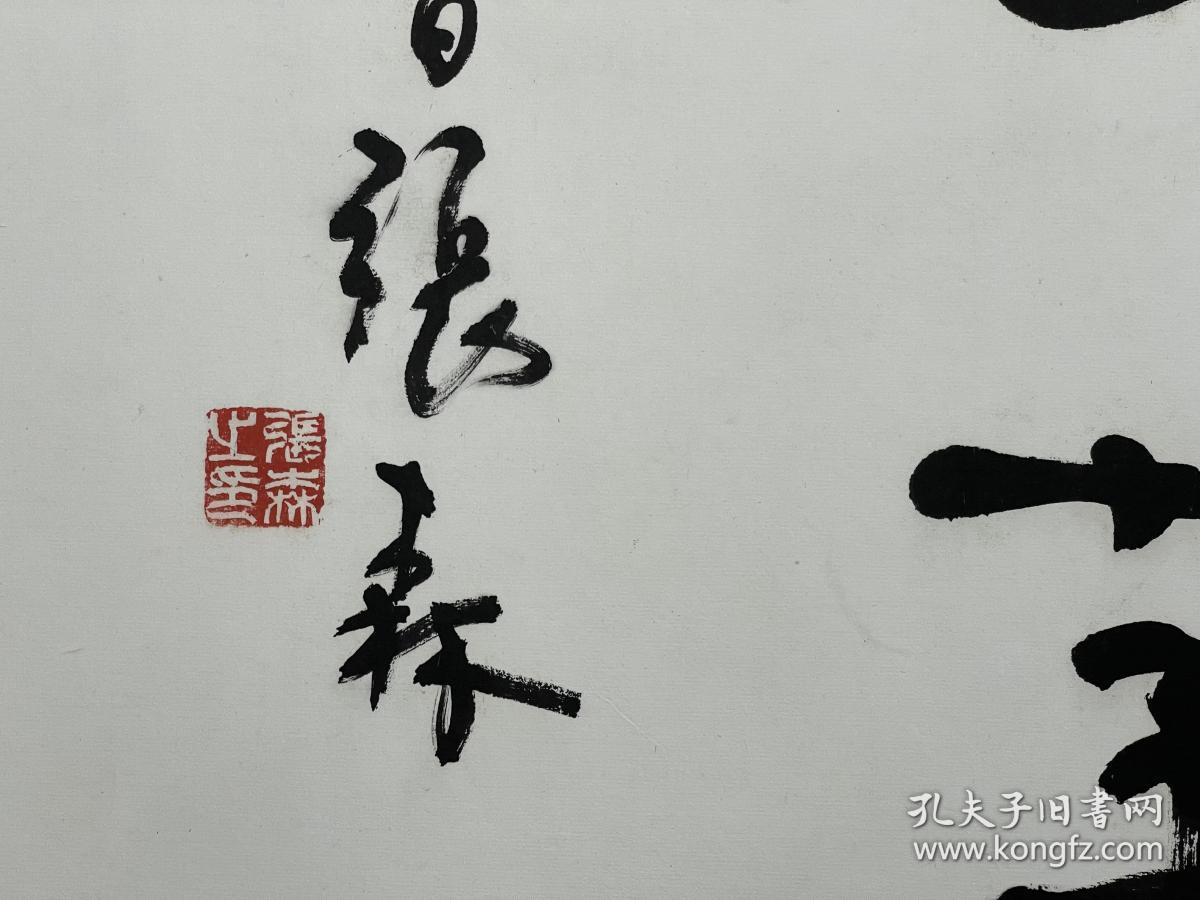 日張森
張森
之印
孔夫子旧書网
www.kongfz.com